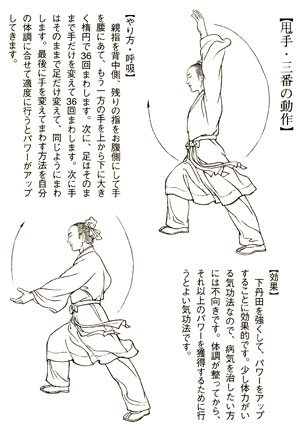 【甩手・三番の動作】
【やり方・呼吸】
親指を背中側、残りの指をお腹側にして手
を腰にあて、もう一方の手を上から下に大き
く楕円で36回まわします。次に、足はそのま
まで手だけを変えて36回まわします。次に手
はそのままで足だけ変えて、同じようにまわ
します。最後に手を変えてまわす方法を自分
の体調に合せて適度に行うとパワーがアップ
してきます。
【効果】
下丹田を強くして、パワーをアップ
することに効果的です。少し体力がい
る気功法なので、病気を治したい方
には不向きです。体調が整ってから、
それ以上のパワーを獲得するために行
うとよい気功法です。